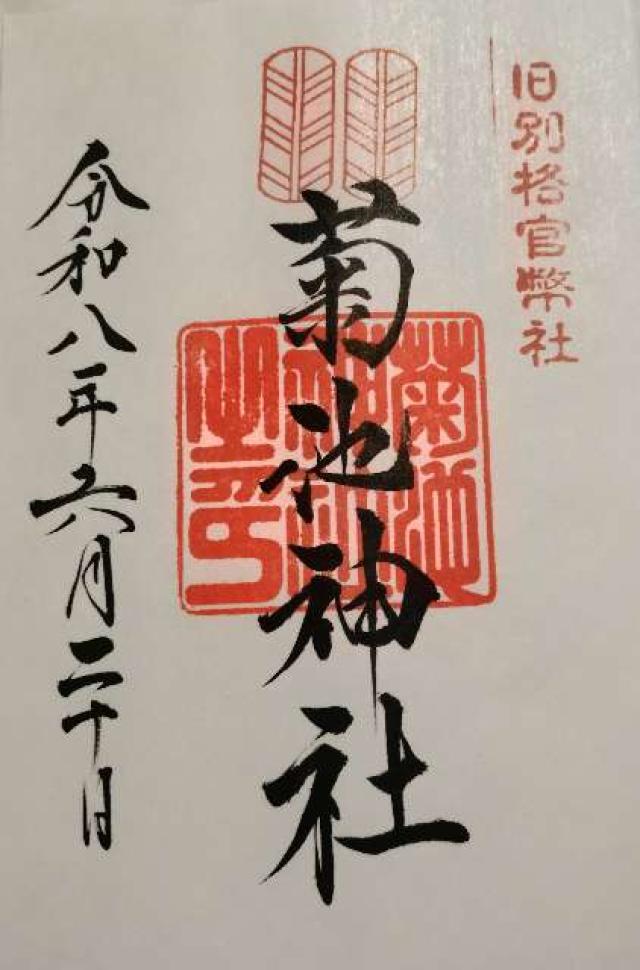 旧別格官幣社
菊池神社
菊池
神社
之印
令和八年六月二十日